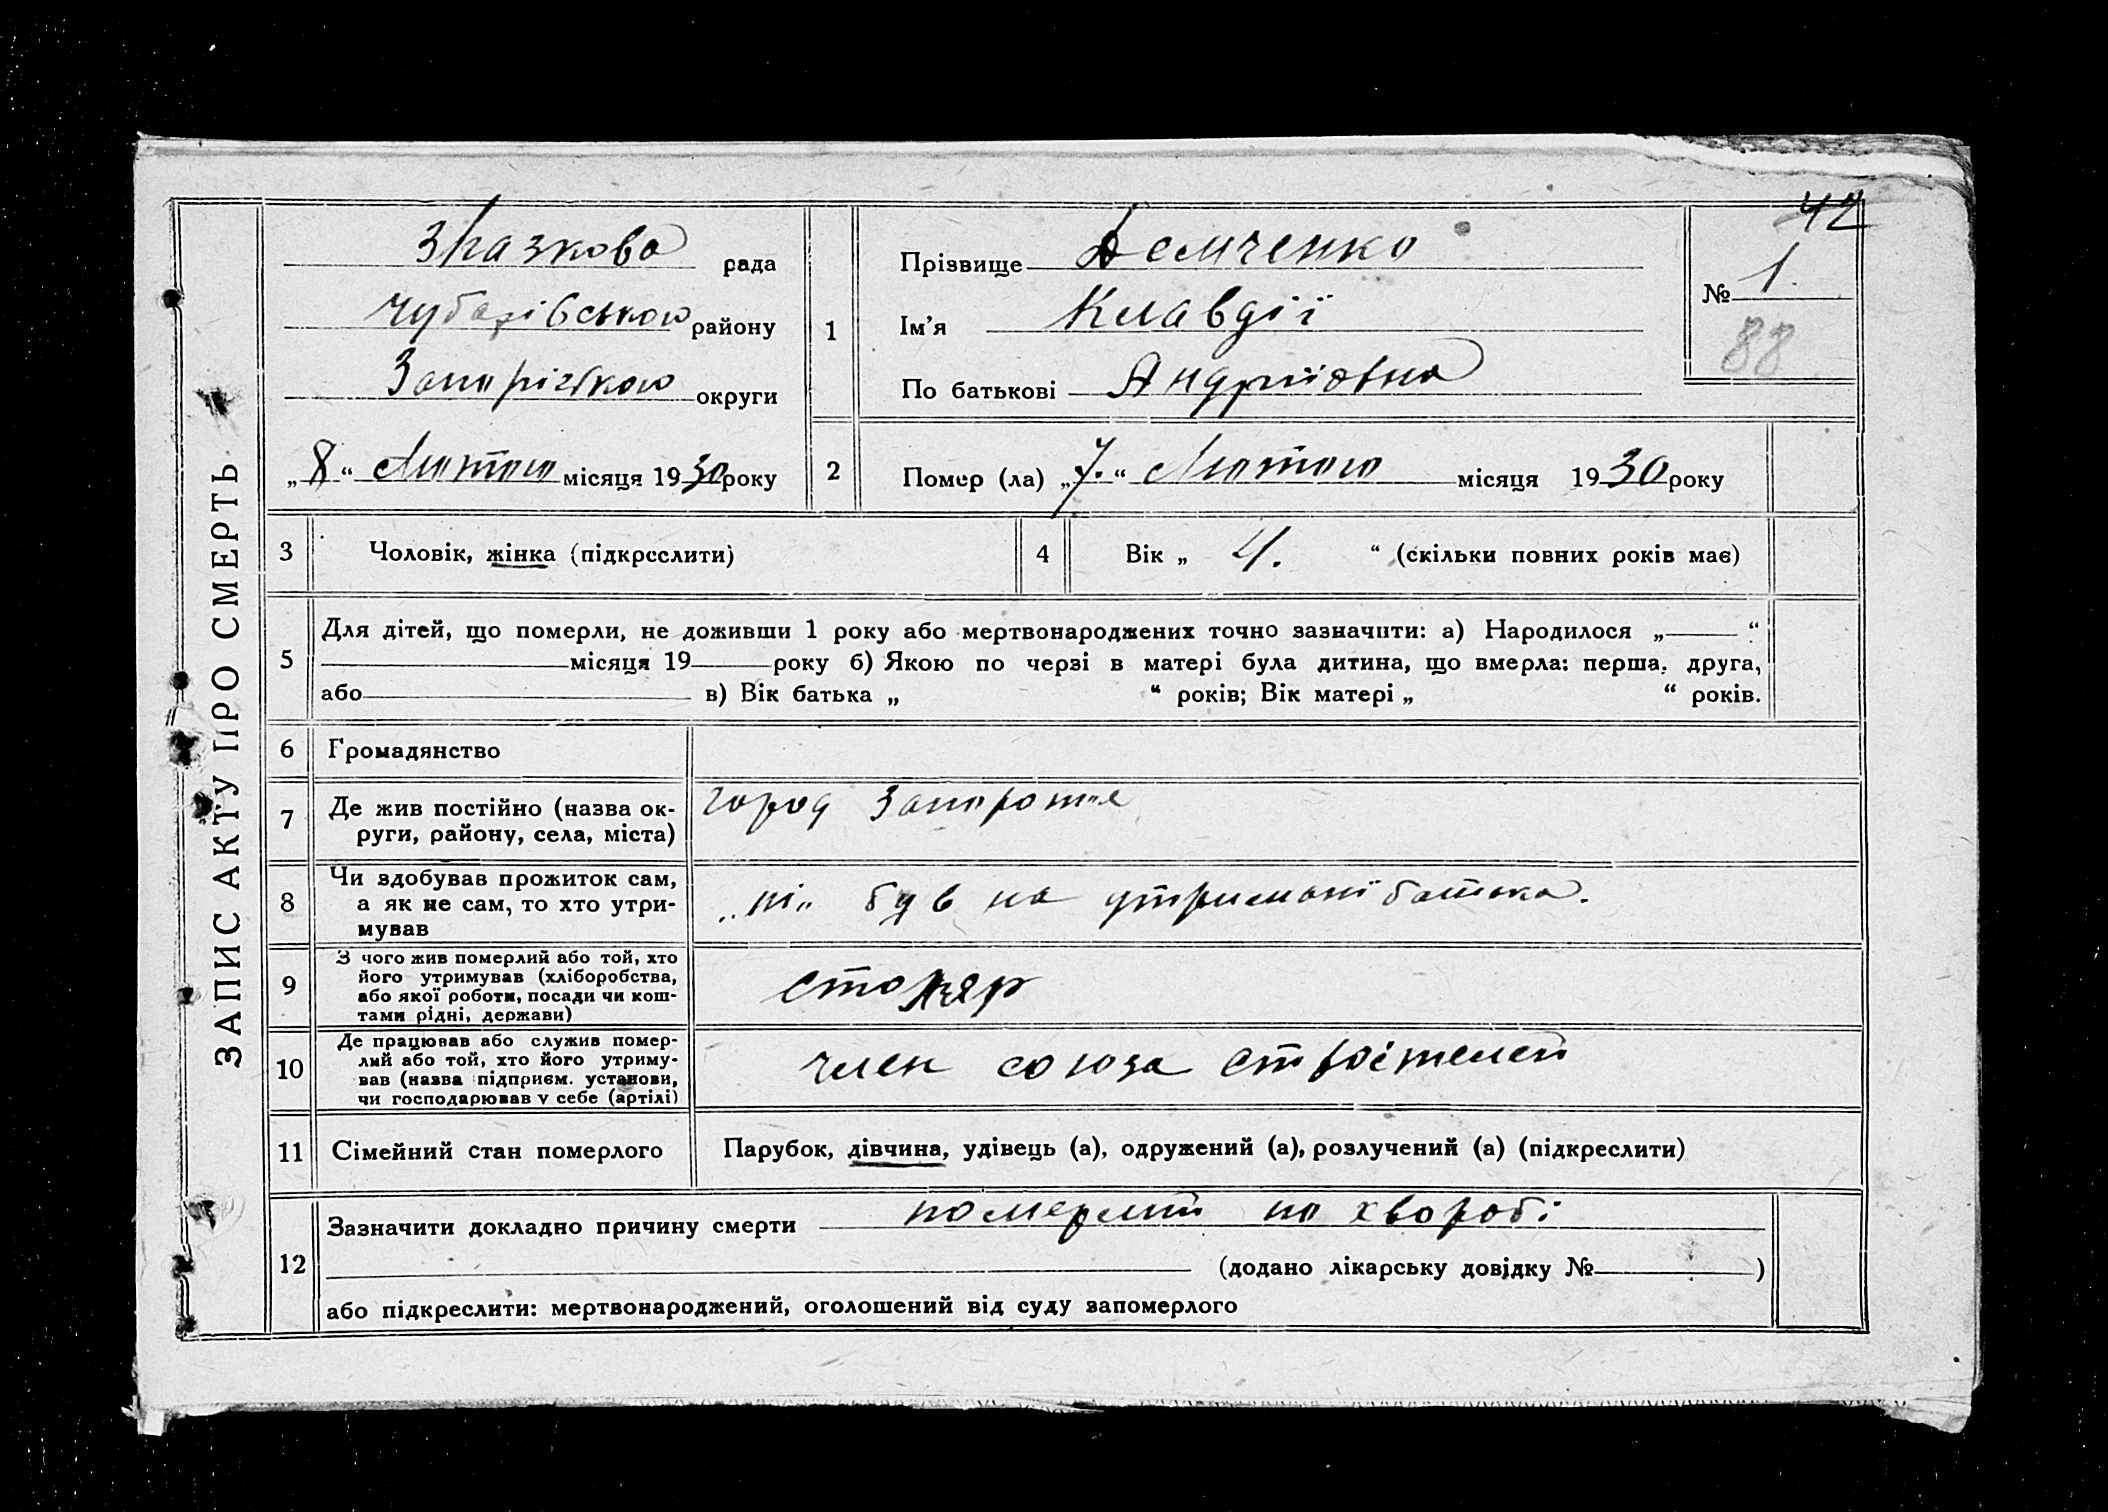 42
ЗАПИС АКТУ ПРО СМЕРТЬ
Зразкова рада
Чубарівського району
Запоріжкого округи
„8“ Лютого місяця 1930 року
1
Прізвище Демченко
Ім’я Клавдії
По батькові Андріївна
№ 1.
88
2
Помер (ла) „7.“ Лютого місяця 1930 року
3 Чоловік, жінка (підкреслити)
4 Вік „ 4. “ (скільки повних років має)
5
Для дітей, що померли, не доживши 1 року або мертвонароджених точно зазначити: а) Народилося „ “
місяця 19 року б) Якою по черзі в матері була дитина, що вмерла: перша, друга,
або в) Вік батька „ “ років; Вік матері „ “ років.
6 Громадянство
7 Де жив постійно (назва ок-
руги, району, села, міста)
город Запорожье
8 Чи здобував прожиток сам,
а як не сам, то хто утри-
мував
„ні„ був на утримані батька.
9 З чого жив померлий або той, хто
його утримував (хліборобства,
або якої роботи, посади чи кош-
тами рідні, держави)
столяр
10 Де працював або служив помер-
лий або той, хто його утриму-
вав (назва підприєм. установи,
чи господарював у себе (артілі)
член союза строітелей
11 Сімейний стан померлого
Парубок, дівчина, удівець (а), одружений (а), розлучений (а) (підкреслити)
12
Зазначити докладно причину смерти по хворобі
(додано лікарську довідку № )
або підкреслити: мертвонароджений, оголошений від суду запомерлого